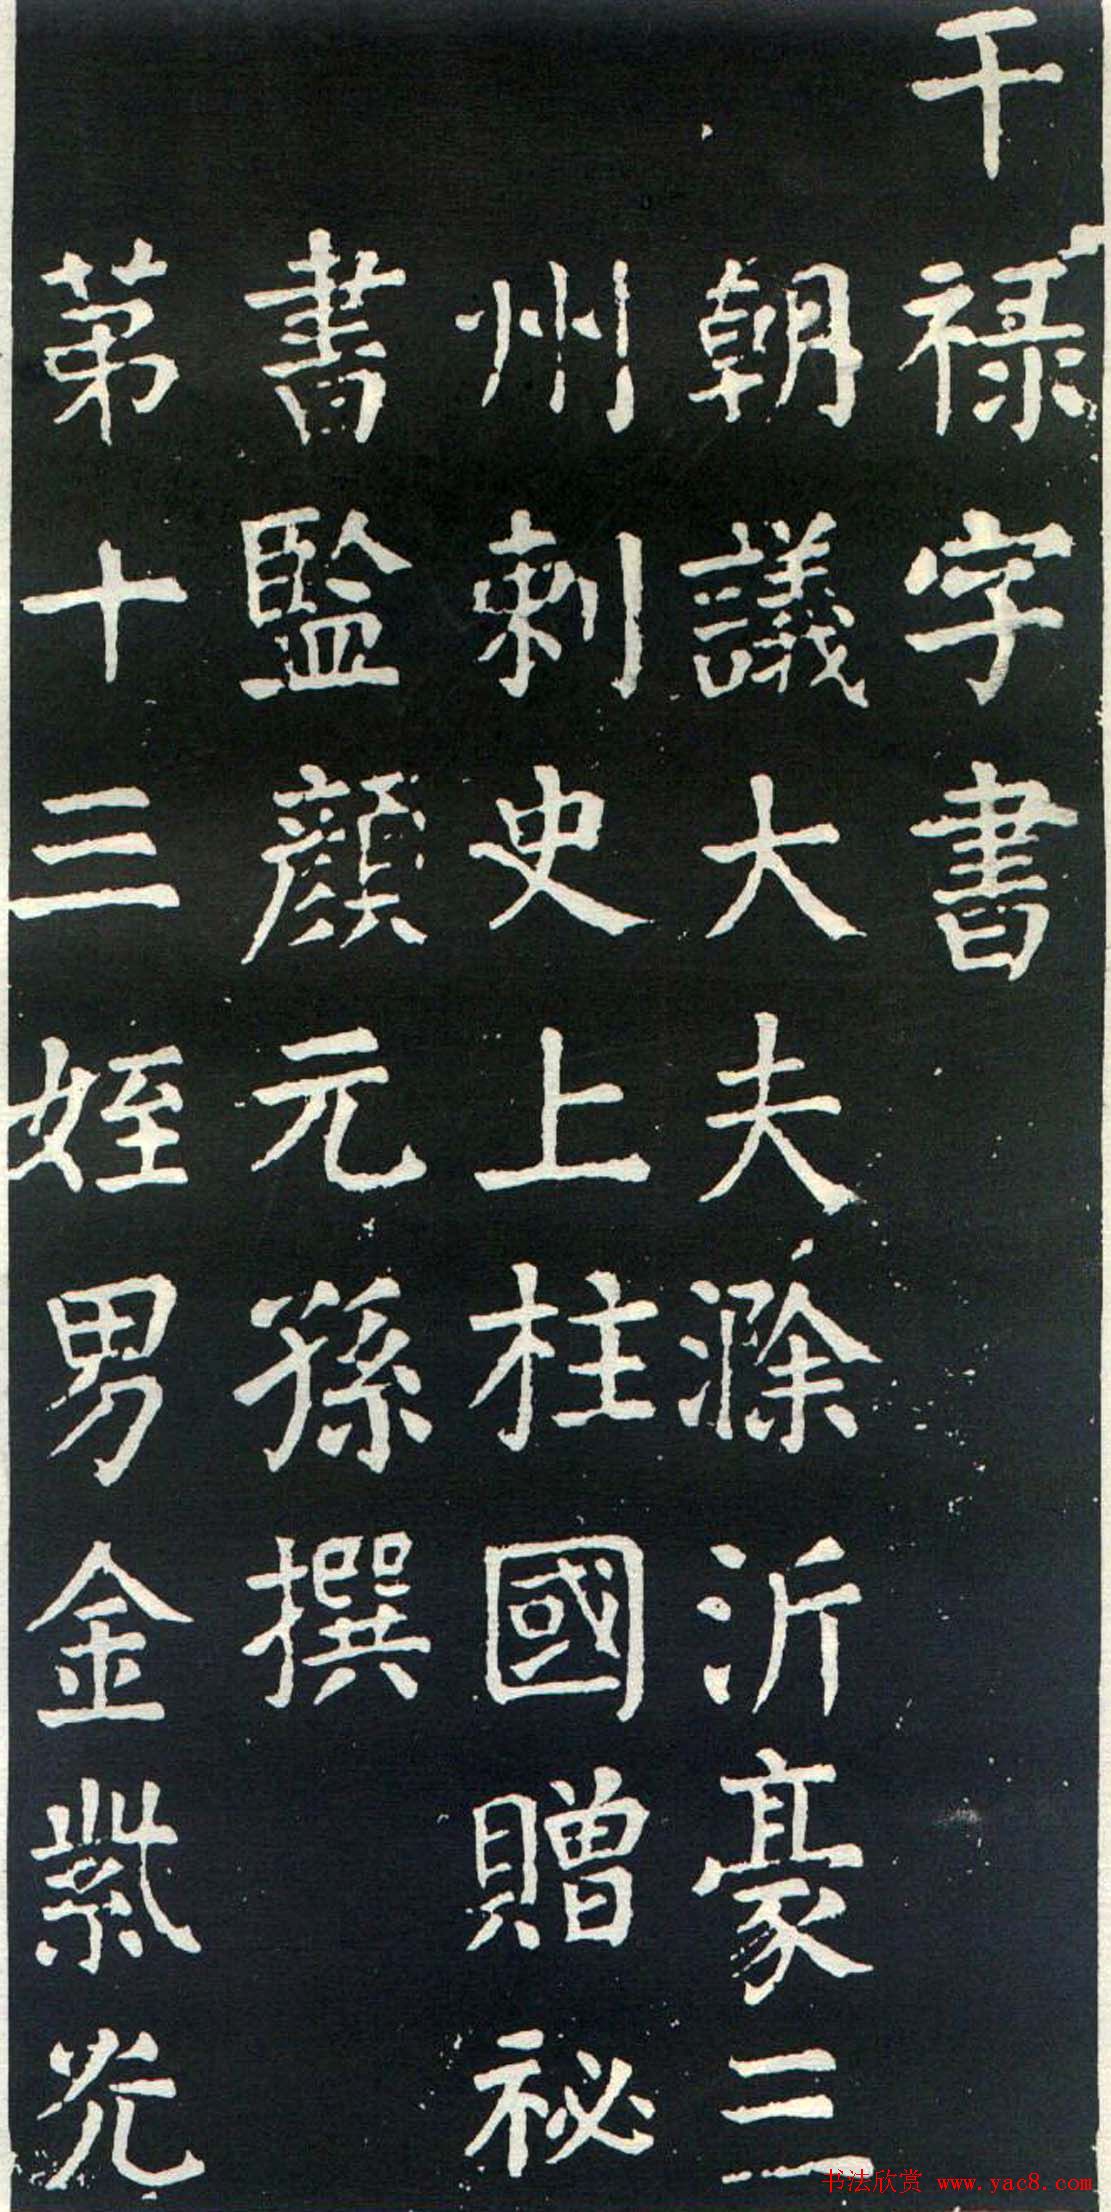 干禄字書
朝議大夫滁沂豪三
州刺史上柱國贈祕
書監顔元孫撰
苐十三姪男金紫光
书法欣赏 www.yac8.com